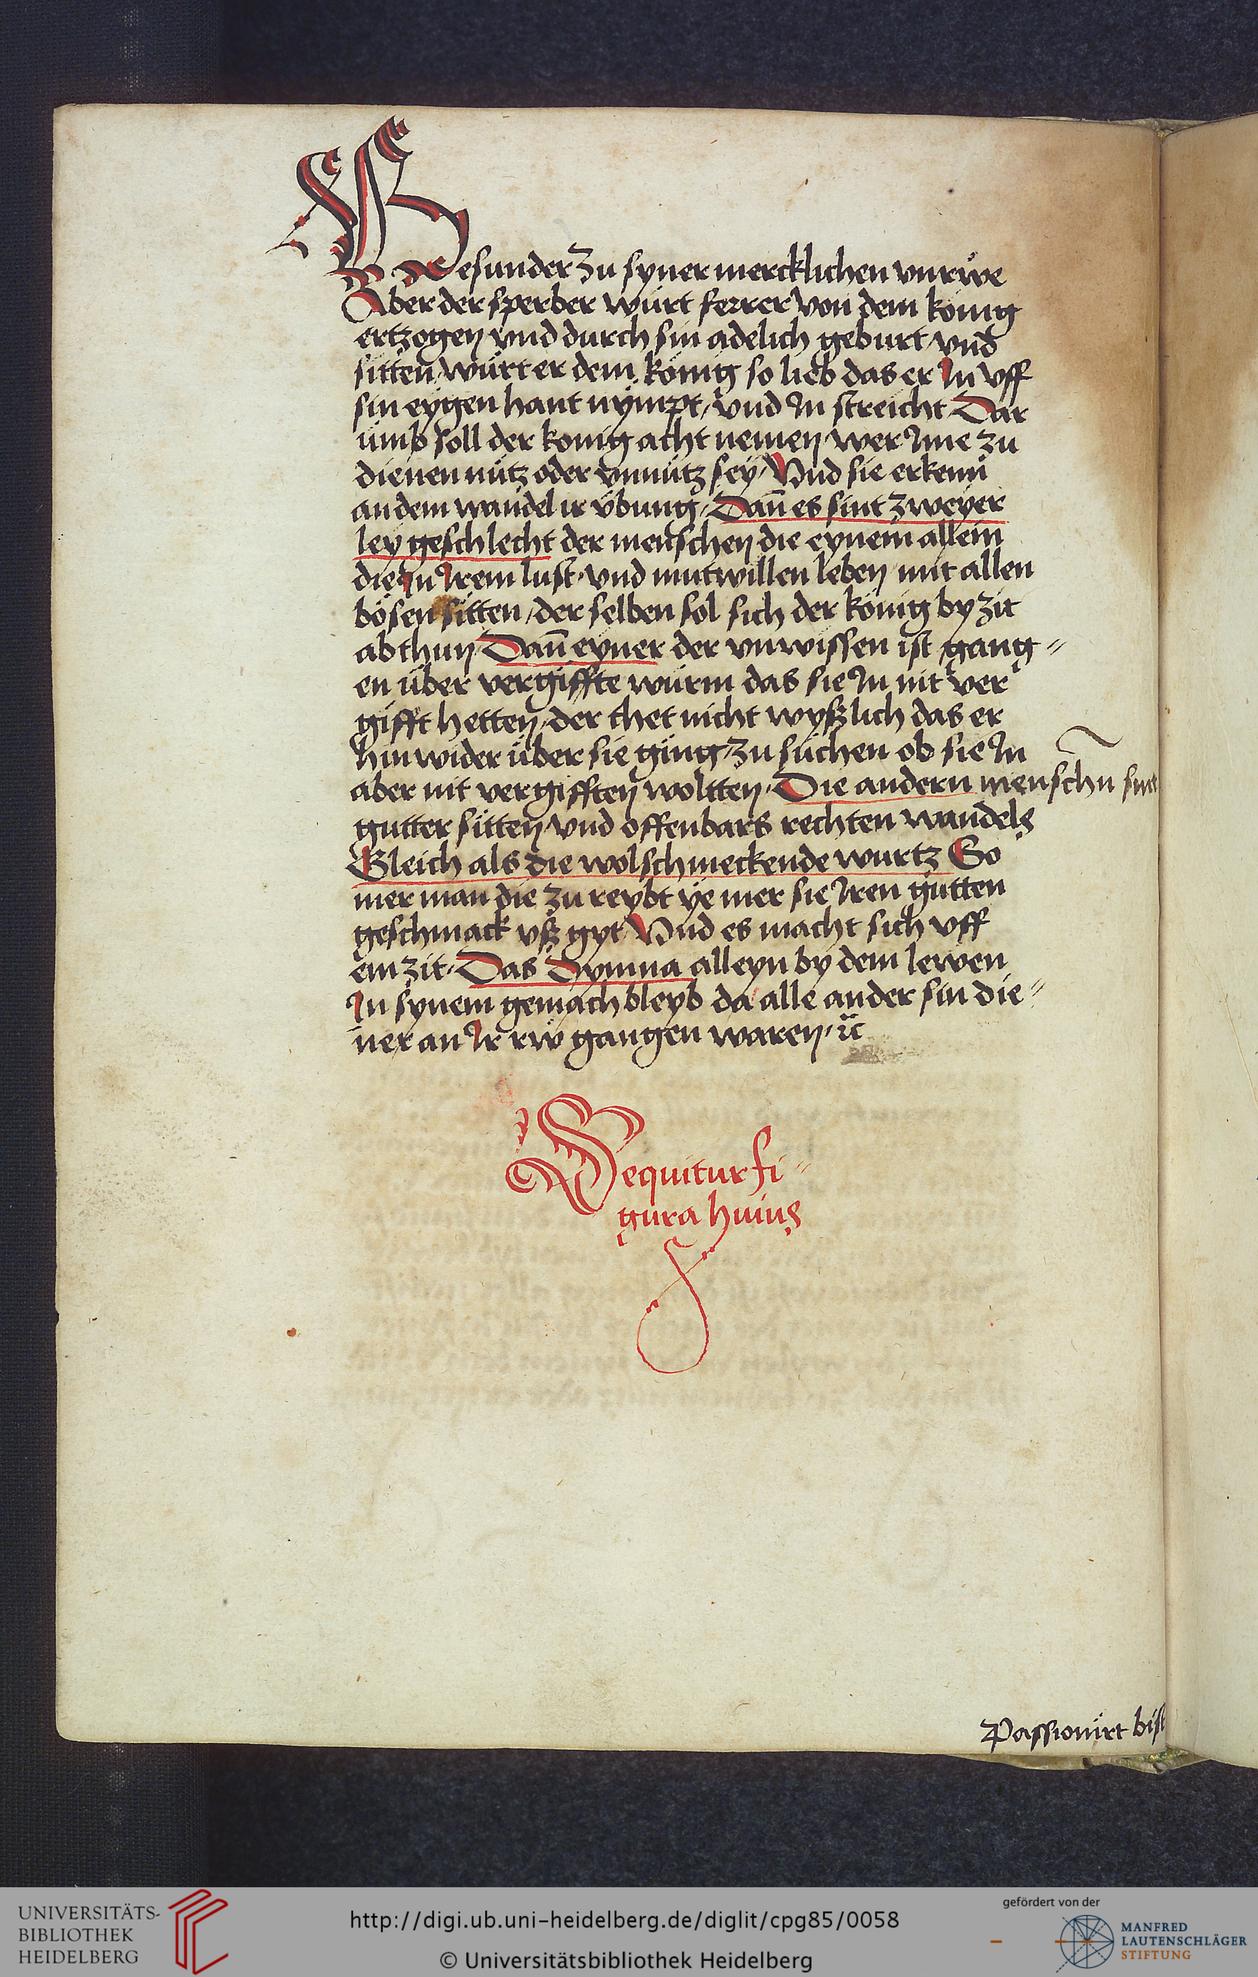 Besunder zu syner mercklichen vnrwe
Aber der sperber würt ferrer von dem könig
ertzogen vnd durch sin adelich geburt vnd
sitten würt er dem könig so lieb das er In vff
sin eygen hant nympt / vnd In streicht Dar
umb soll der konig acht nemen wer Ime zu
dienen nütz oder vnnütz sey / Vnd sie erkenn
an dem wandel ir übung / Dañ es sint zweyer
ley geschlecht der menschen die eynem allein
die In Irem lust vnd mutwillen leben mit allen
bösen sitten / der selben sol sich der könig by zit
abthun Dañ eyner der vnwissen ist gang=
en über vergiffte würm das sie In nit ver
gifft hetten der thet nicht wyßlich das er
hinwider über sie ging zu suchen ob sie In
aber nit vergifften woltten Die andern menschn sint
gutter sitten vnd offenbars rechten wandels
Gleich als die wolschmeckende wurtz So
mer man die zu reybt ye mer sie Iren gutten
geschmack vß gyt Vnd es macht sich vff
ein zit Das Dymna alleyn by dem lewen
In synem gemach bleyb da alle ander sin die=
ner an Ir rw gangen waren ⁊c
Sequitur fi=
gura huius
Passionirt bist
UNIVERSITÄTS-
BIBLIOTHEK
HEIDELBERG
http://digi.ub.uni-heidelberg.de/diglit/cpg85/0058
© Universitätsbibliothek Heidelberg
gefördert von der
MANFRED
LAUTENSCHLÄGER
STIFTUNG